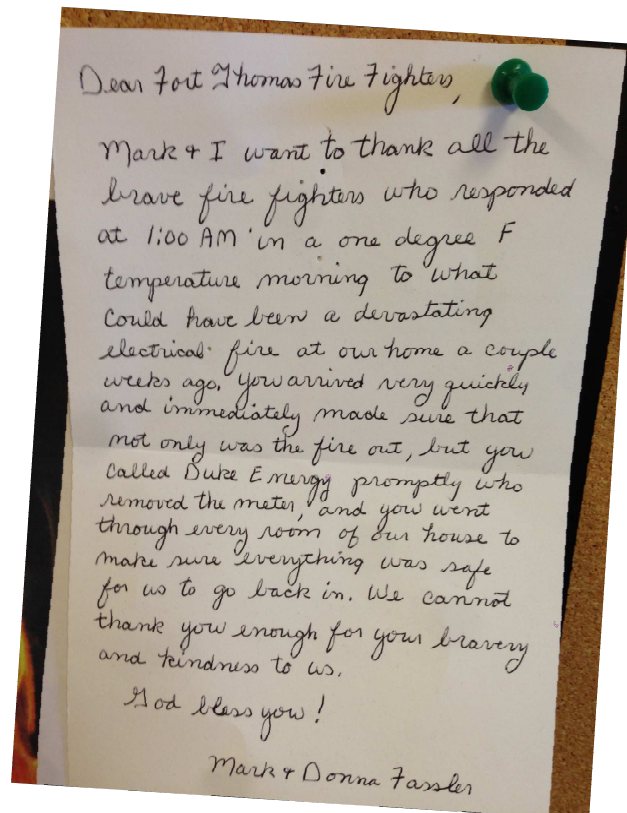 Dear Fort Thomas Fire Fighters,
Mark & I want to thank all the
brave fire fighters who responded
at 1:00 AM in a one degree F
temperature morning to what
could have been a devastating
electrical fire at our home a couple
weeks ago. You arrived very quickly
and immediately made sure that
not only was the fire out, but you
called Duke Energy promptly who
removed the meter, and you went
through every room of our house to
make sure everything was safe
for us to go back in. We cannot
thank you enough for your bravery
and kindness to us.
God bless you!
Mark & Donna Fassler